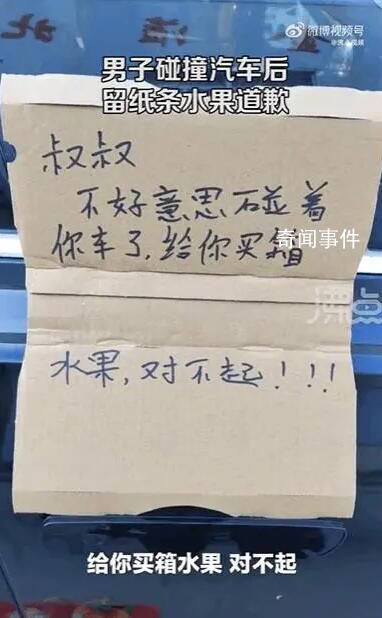 微博视频号
@沸点视频
男子碰撞汽车后
留纸条水果道歉
叔叔
不好意思碰着
你车了,给你买箱
奇闻事件
沸点
水果,对不起!!!
给你买箱水果 对不起